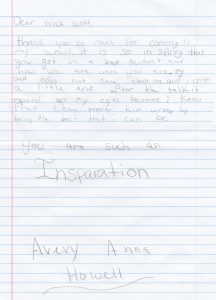 Dear nick scott,
thank you so much for coming to
my school it is so inspiring that
you got in a bad accident and
now you are were you are, my
and does not care about me and I cryed
a little and after the talk it
opend up my eyes because I know
that I can moch him wrong by
being the best that I can be.
You are such an
Insparation
Avery Anna
Howell